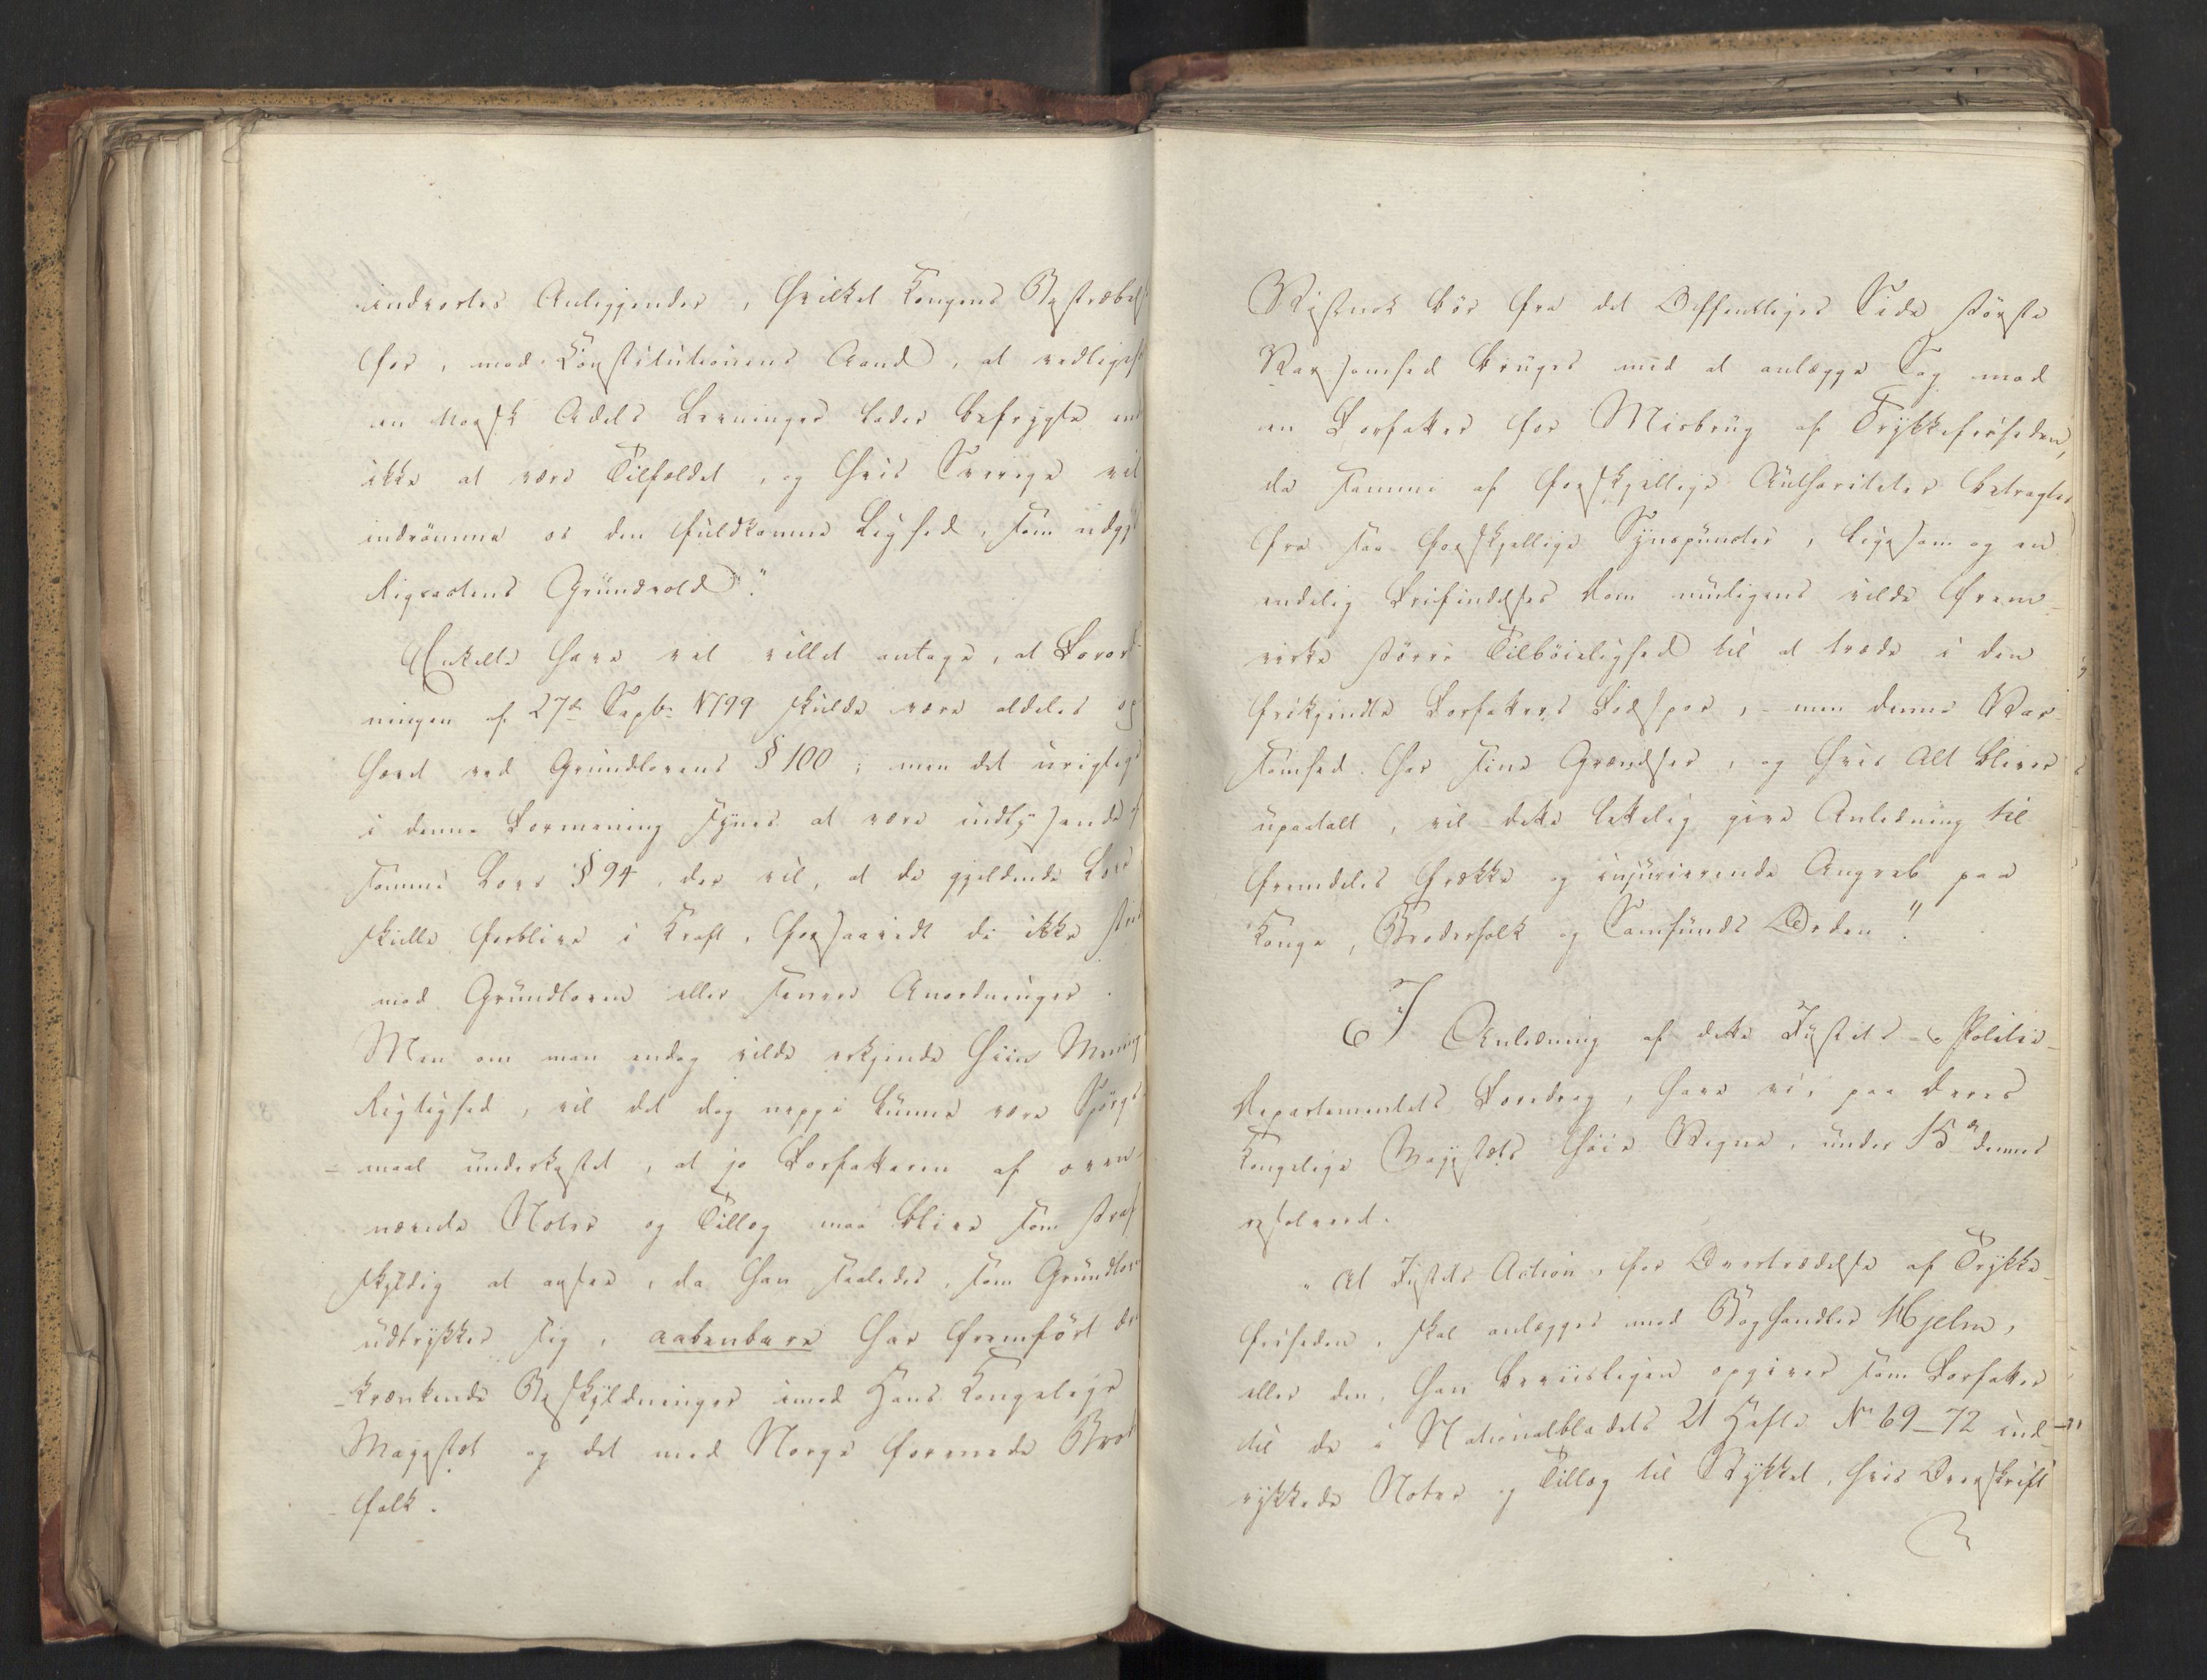 indvortes Anliggender, hvilket Kongens Bestræbels
for, mod Constitutionens Aand, at vedligeh
en norsk Adels Levninger lader befrygte
ikke at være Tilfældet, og hvis Sverige vil
indrömme os den fuldkomne Lighed, som udgjö
Rigsactens Grundvold".
Enkelte have vel villet antage, at Forord
ningen af 27de Septbr 1799 skulde være aldeles op
hævet ved Grundlovens § 100; men det urigtige
i denne Formening synes at være indlysende af
samme Lovs § 94, der vil, at de gjeldende Love
skulle forblive i Kraft, forsaavidt de ikke stri
mod Grundloven eller senere Anordninger.
Men om man endog vilde erkjende hiin Mening
Rigtighed, vil det dog neppe kunne være Spörgs
maal underkastet, at jo Forfatteren af oven-
nævnte Noter og Tillæg maa blive som straf
skyldig at ansee, da han saaledes, som Grundlov
udtrykker sig, aabenbare har fremfört de
krænkende Beskyldninger imod Hans Kongelige
Majestæt og det med Norge forenede Brod
folk.
Vistnok bör fra det Offentliges Side störste
Varsomhed bruges med at anlægge Sag mod
en Forfatter for Misbrug af Trykkefriheden,
da samme af forskjellige Authoriteter betragtes
fra saa forskjellige Synspuncter, ligesom og en
endelig Frifindelses Dom muligens vilde frem-
virke större Tilböielighed til at træde i den
frikjendte Forfatters Fodspor, - men denne Var-
somhed har sine Grændser, og hvis Alt bliver
upaatalt, vil dette lettelig give Anledning til
fremdeles frække og injurierende Angreb paa
Konge, Broderfolk og Samfunds Orden".
I Anledning af dette Justits- og Politie-
Departementets Foredrag, have vi, paa Deres
Kongelige Majestæts höie Vegne, under 15de dennes
resolveret.
"At Justits Action, for Overtrædelse af Trykke-
friheden, skal anlægges mod Boghandler Hjelm,
eller den, han beviisligen opgiver som Forfatter
til de i Nationalbladets 21 Hefte No 69-72 ind-
rykkede Noter og Tillæg til Stykket, hvis Overskrift